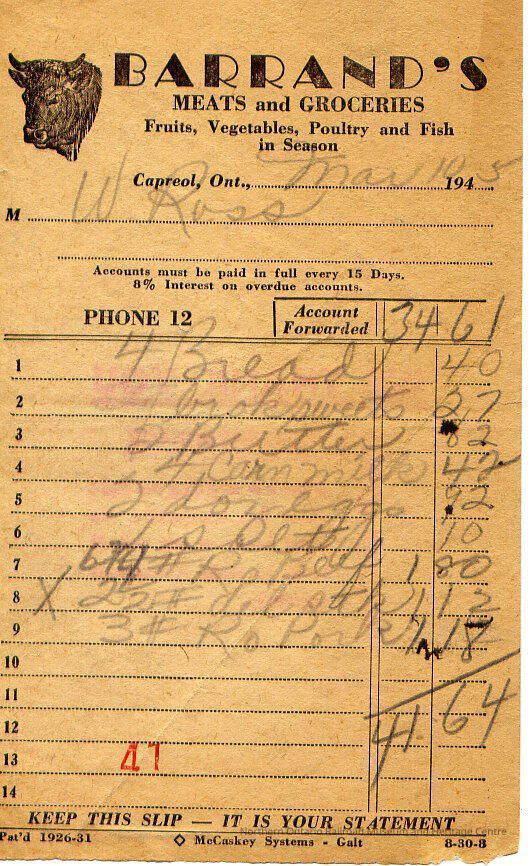 BARRAND'S
MEATS and GROCERIES
Fruits, Vegetables, Poultry and Fish
in Season
Capreol, Ont., Mar 10 1945
M W Ross
Accounts must be paid in full every 15 Days.
8% Interest on overdue accounts.
PHONE 12 Account Forwarded 34 61
1 4 Bread 40
2 sweets 27
3 2 Butter 82
4 4 Carn milk 42
5 2 doz eggs 92
6 10
7 # Ro Beef 1 80
8 X # 1 12
9 3 # Ro Pork 1 18
10
11 64
12 41
13 41
14
KEEP THIS SLIP — IT IS YOUR STATEMENT
Northern Ontario Railroad Museum and Heritage Centre
Pat'd 1926-31 ◇ McCaskey Systems - Galt 8-30-8